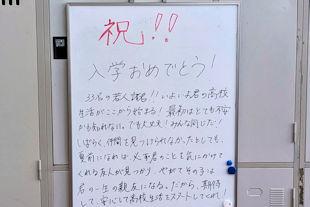 祝!!
入学おめでとう!
33名の若人諸君!!いよいよ君の高校
生活がここから始まる!最初はとても不安
かも知れない。でも大丈夫!みんな同じだ!
しばらく仲間を見つけられなかったとしても、
真剣になれば、必ず君のことを気にかけて
くれる友人が見つかり、やがてその子は
君の一生の親友になる。だから、期待
して、安心して高校生活をスタートしてくれ!